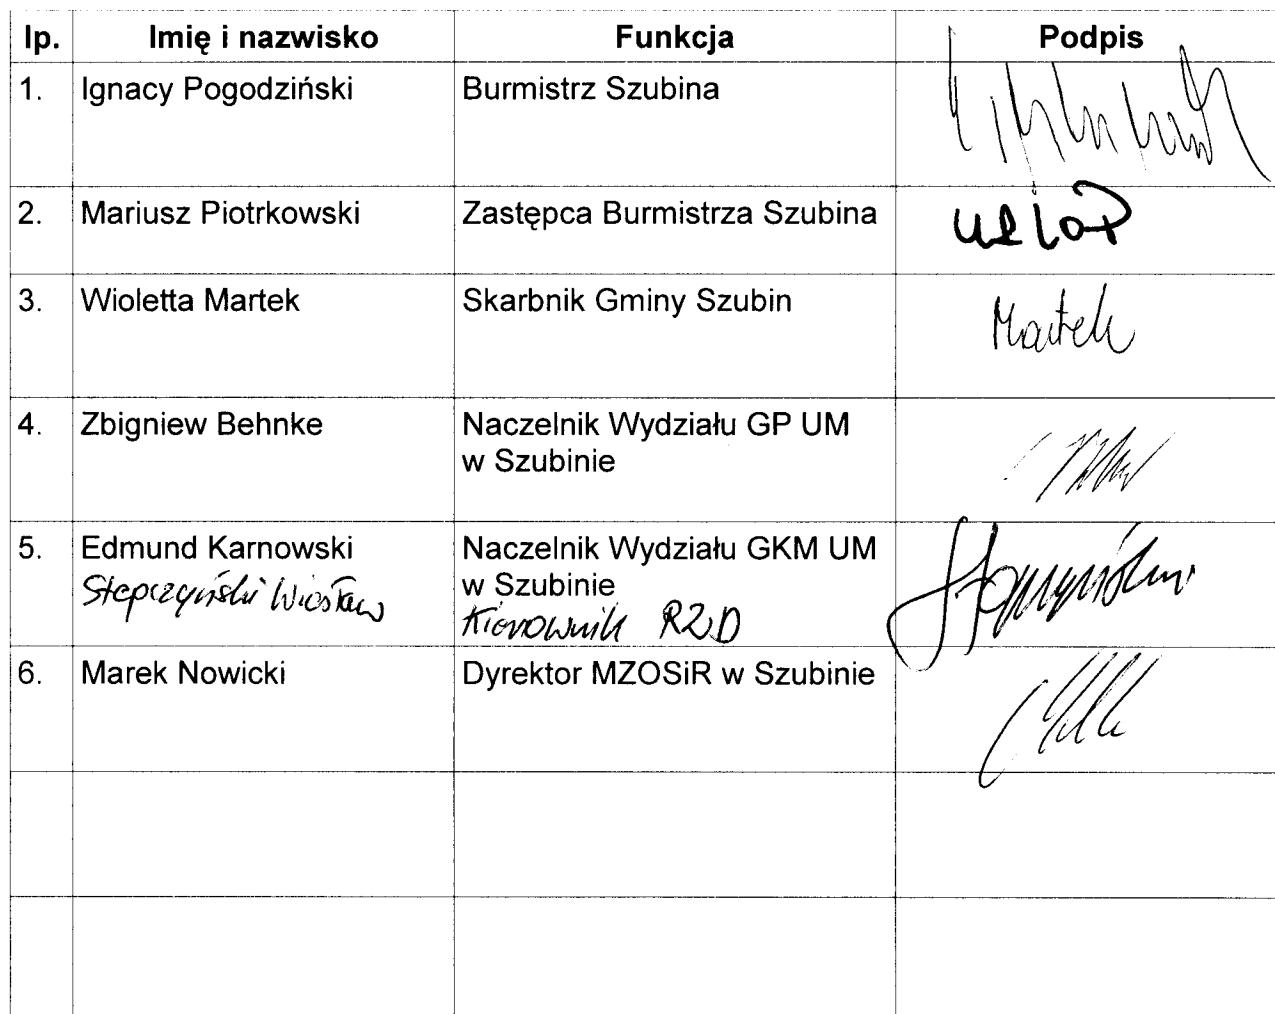 lp. Imię i nazwisko Funkcja Podpis
1. Ignacy Pogodziński Burmistrz Szubina
2. Mariusz Piotrkowski Zastępca Burmistrza Szubina urlop
3. Wioletta Martek Skarbnik Gminy Szubin Martek
4. Zbigniew Behnke Naczelnik Wydziału GP UM
w Szubinie
5. Edmund Karnowski Naczelnik Wydziału GKM UM
w Szubinie
Stepczyński Wiesław Kierownik RZD
6. Marek Nowicki Dyrektor MZOSiR w Szubinie